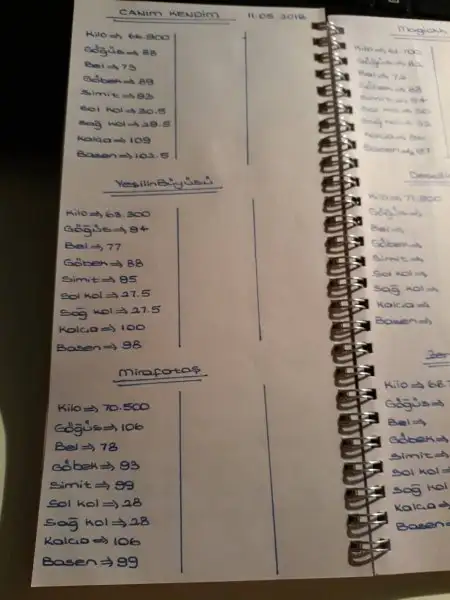 CANIM KENDİM 11.05 2018
Kilo ⇒ 66.900
Göğüs ⇒ 88
Bel ⇒ 73
Göbek ⇒ 89
Simit ⇒ 93
Sol kol ⇒ 30.5
Sağ kol ⇒ 29.5
Kalça ⇒ 109
Basen ⇒ 102.5
YeşilinBüyüsü
Kilo ⇒ 63.300
Göğüs ⇒ 94
Bel ⇒ 77
Göbek ⇒ 88
Simit ⇒ 95
Sol kol ⇒ 27.5
Sağ kol ⇒ 27.5
Kalça ⇒ 100
Basen ⇒ 98
Mirafotaş
Kilo ⇒ 70.500
Göğüs ⇒ 106
Bel ⇒ 78
Göbek ⇒ 93
Simit ⇒ 99
Sol kol ⇒ 28
Sağ kol ⇒ 28
Kalça ⇒ 106
Basen ⇒ 99
Kilo ⇒
Göğüs ⇒
Bel ⇒
Göbek ⇒
Simit ⇒
Sol kol ⇒
Sağ kol ⇒
Kalça ⇒
Basen ⇒
Kilo ⇒ 71.800
Göğüs ⇒
Bel ⇒
Göbek ⇒
Simit ⇒
Sol kol ⇒
Sağ kol ⇒
Kalça ⇒
Basen ⇒
Kilo ⇒ 68.
Göğüs ⇒
Bel ⇒
Göbek ⇒
Simit ⇒
Sol kol ⇒
Sağ kol
Kalça ⇒
Basen